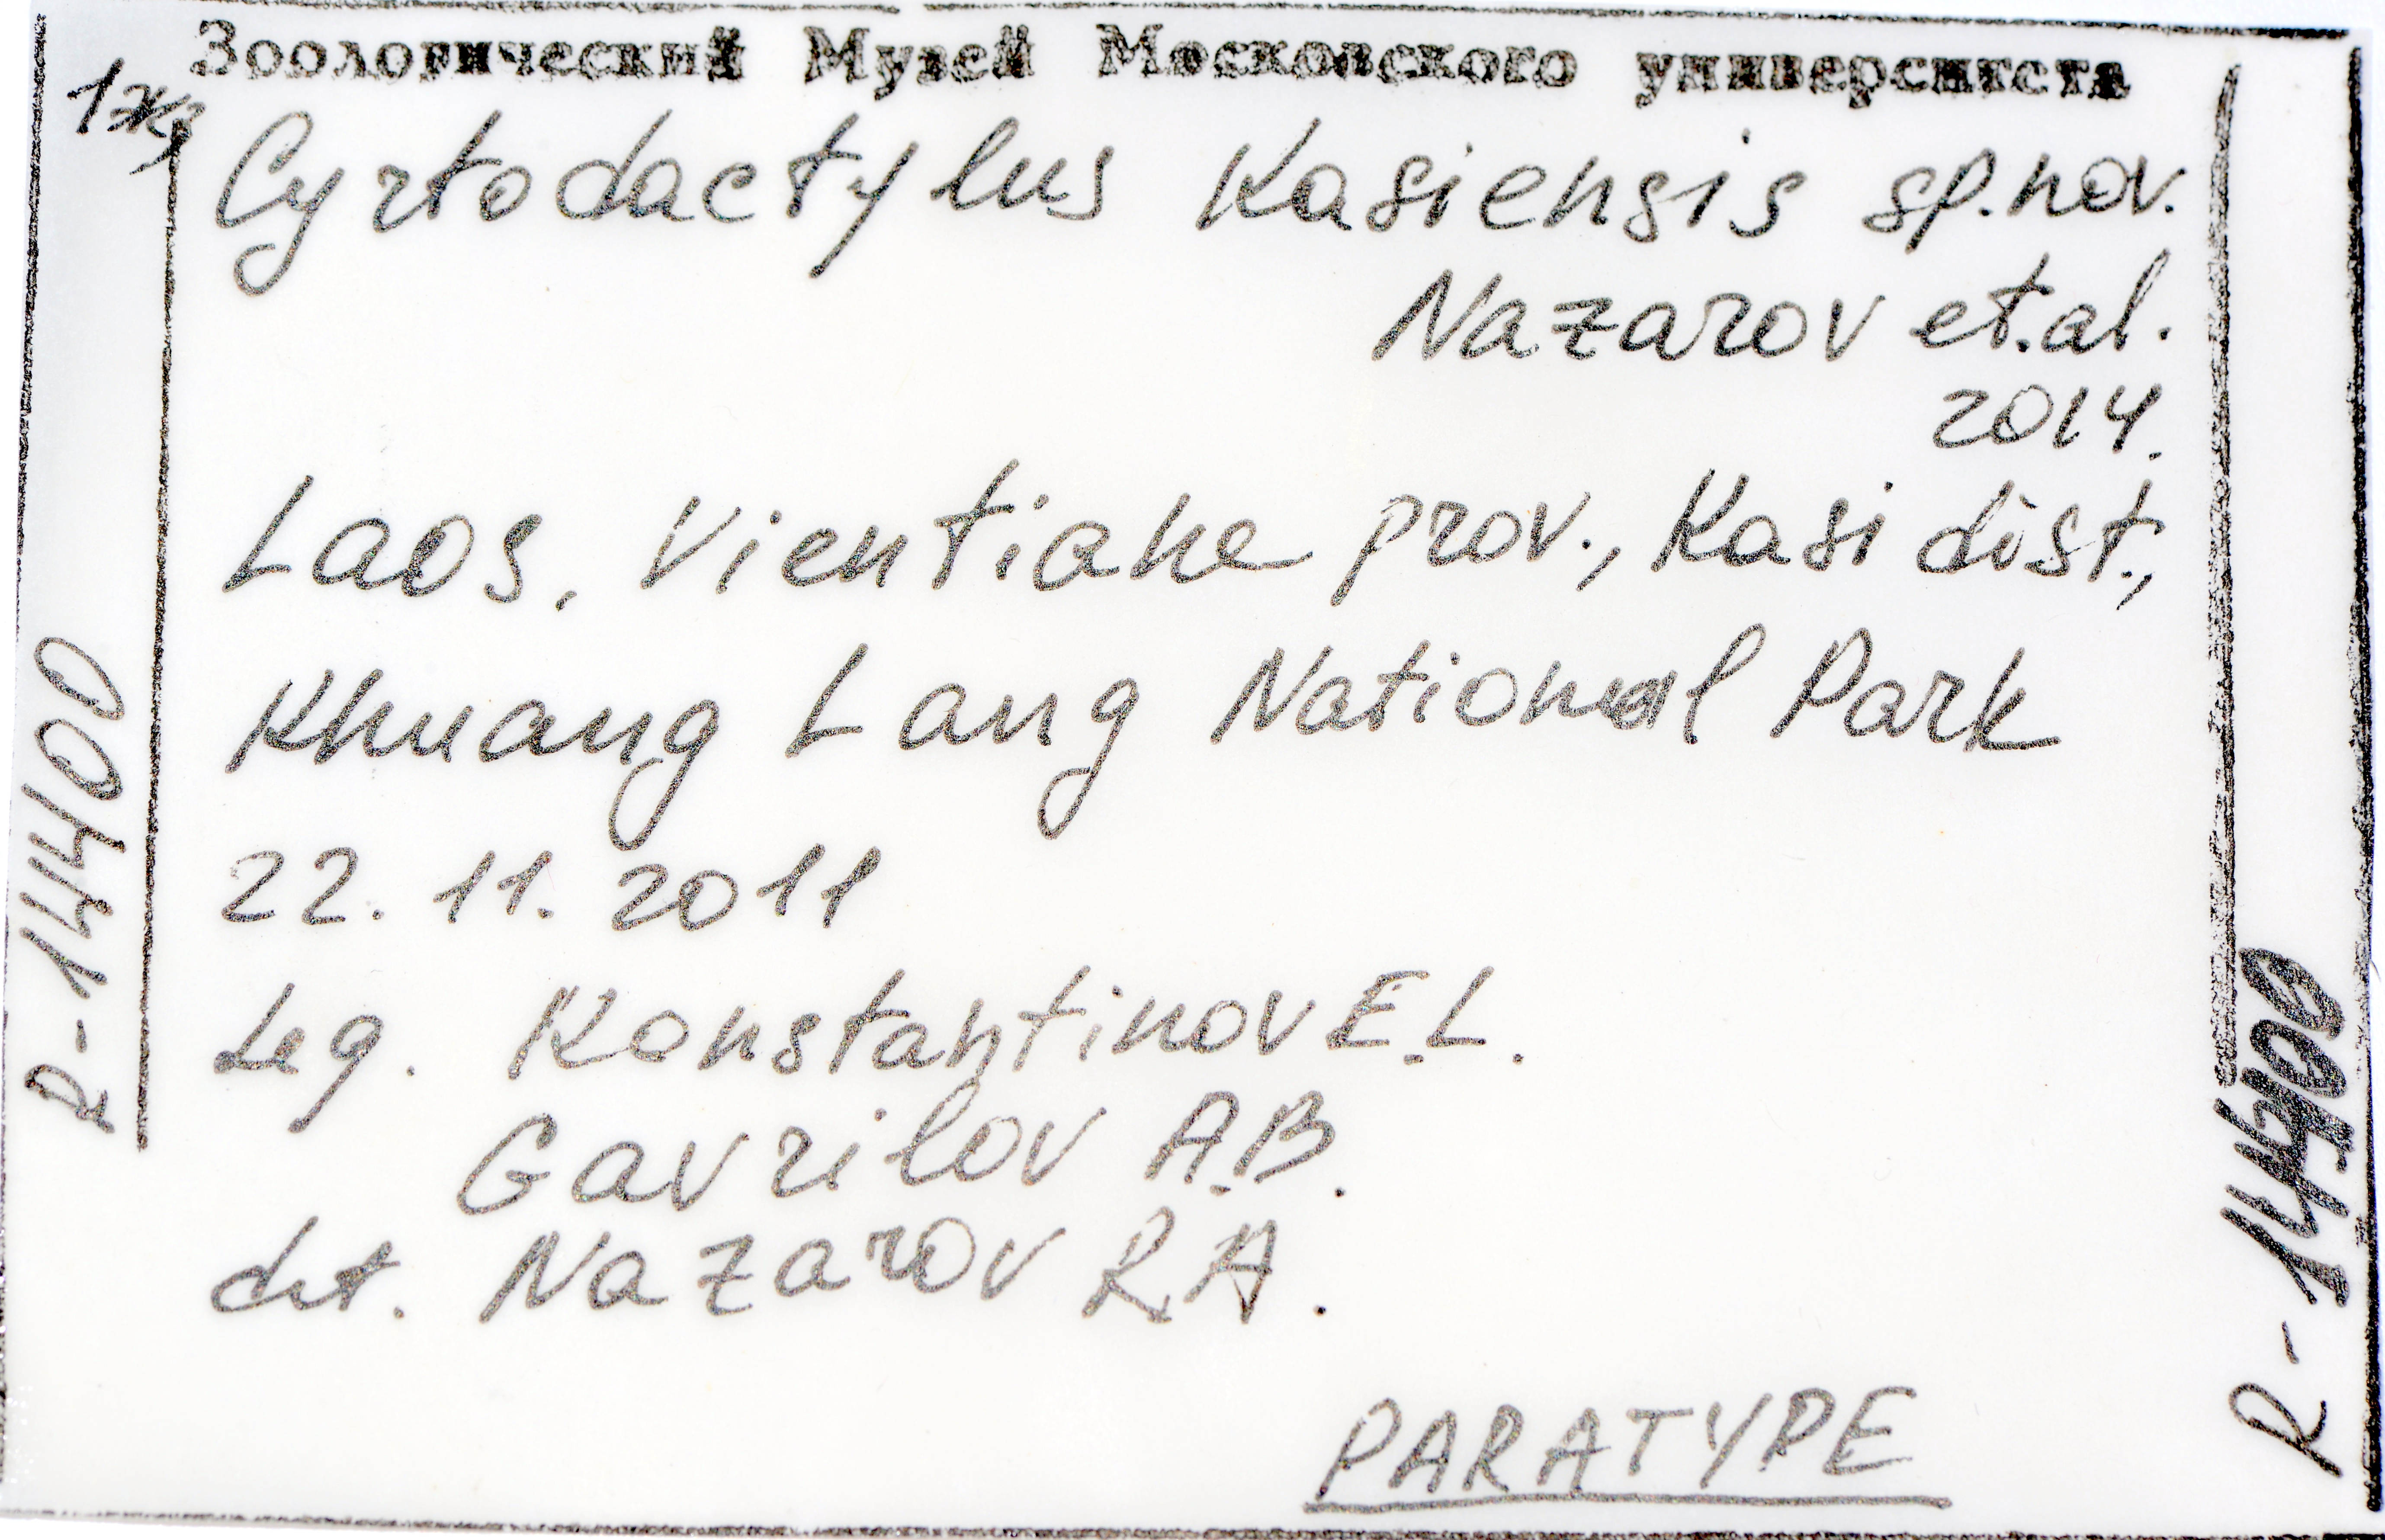 Зоологический Музей Московского университета
1экз
Cyrtodactylus Kasiensis sp.nov.
Nazarov et.al.
2014.
Laos, Vientiane prov., Kasi dist.,
Khuang Lang National Park
22. 11. 2011
Leg. Konstantinov E.L.
Gavrilov A.B.
det. Nazarov R.A.
PARATYPE
R-14400
R-14400